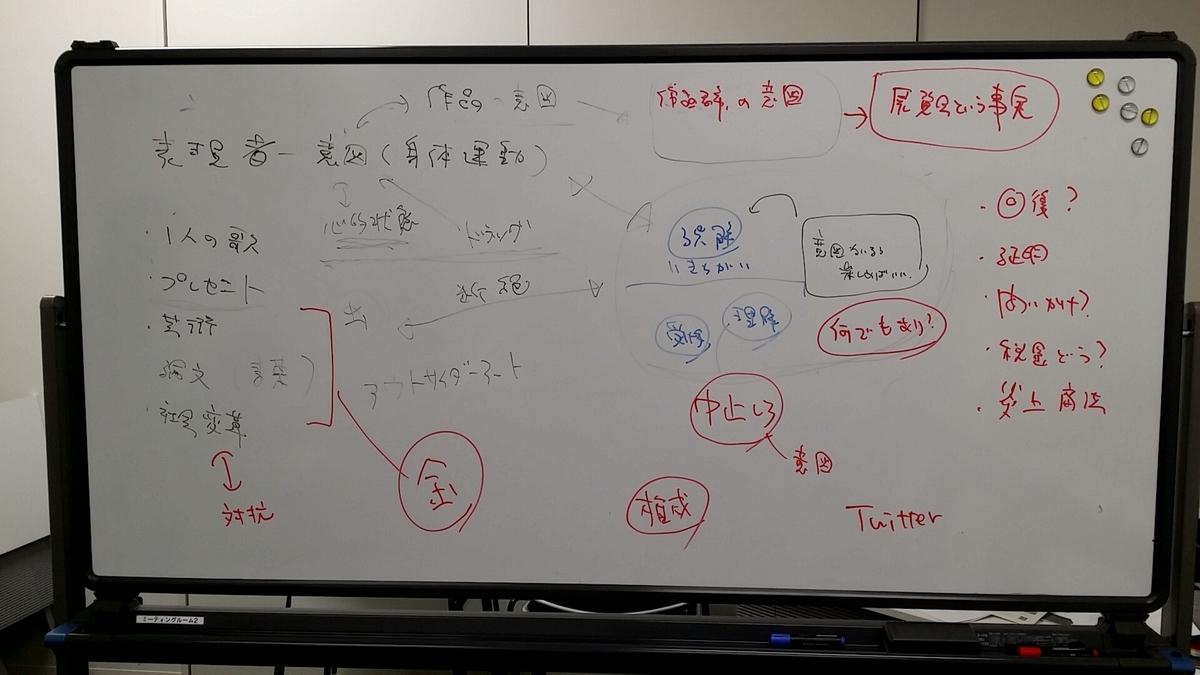 作品の意図
作品群の意図
展覧会という事実
表現者ー意図(身体運動)
心的状態
ドラッグ
・1人の歌
・プレゼント
・芸術
論文
・社会変革
対抗
金
アートサイダーアート
誤解
いきちがい
意図ないなら
楽しければいい
理解
何でもあり?
中止しろ
意図
権威
Twitter
・回復?
・税金どう?
・炎上商法
ミーティングルーム2